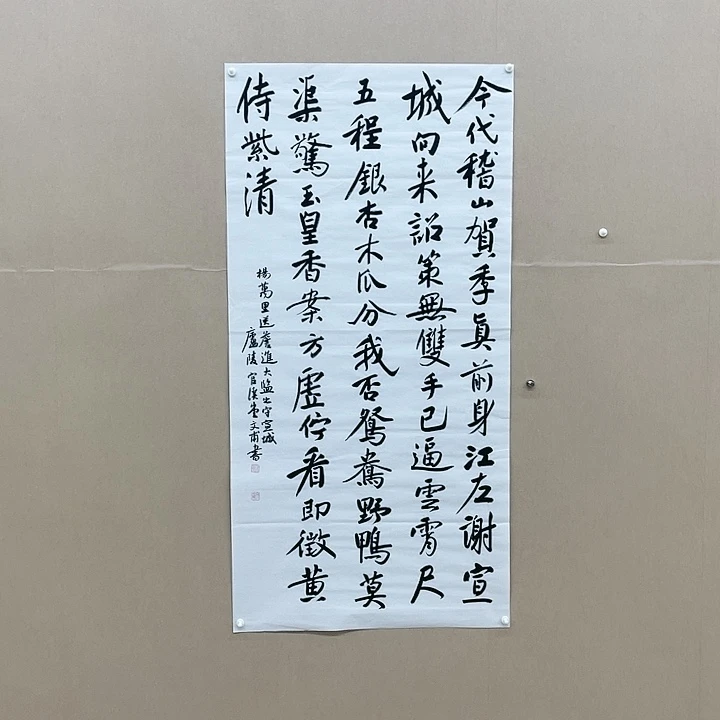 今代稽山賀季真前身江左謝宣
城向来詔策無雙手已逼雲霄尺
五程銀杏木瓜分我否鴛鴦野鴨莫
渠驚玉皇香案方虛佇看即徵黄
侍紫清
楊萬里送詹進大監出守宣城
廬陵官溪 文甫書